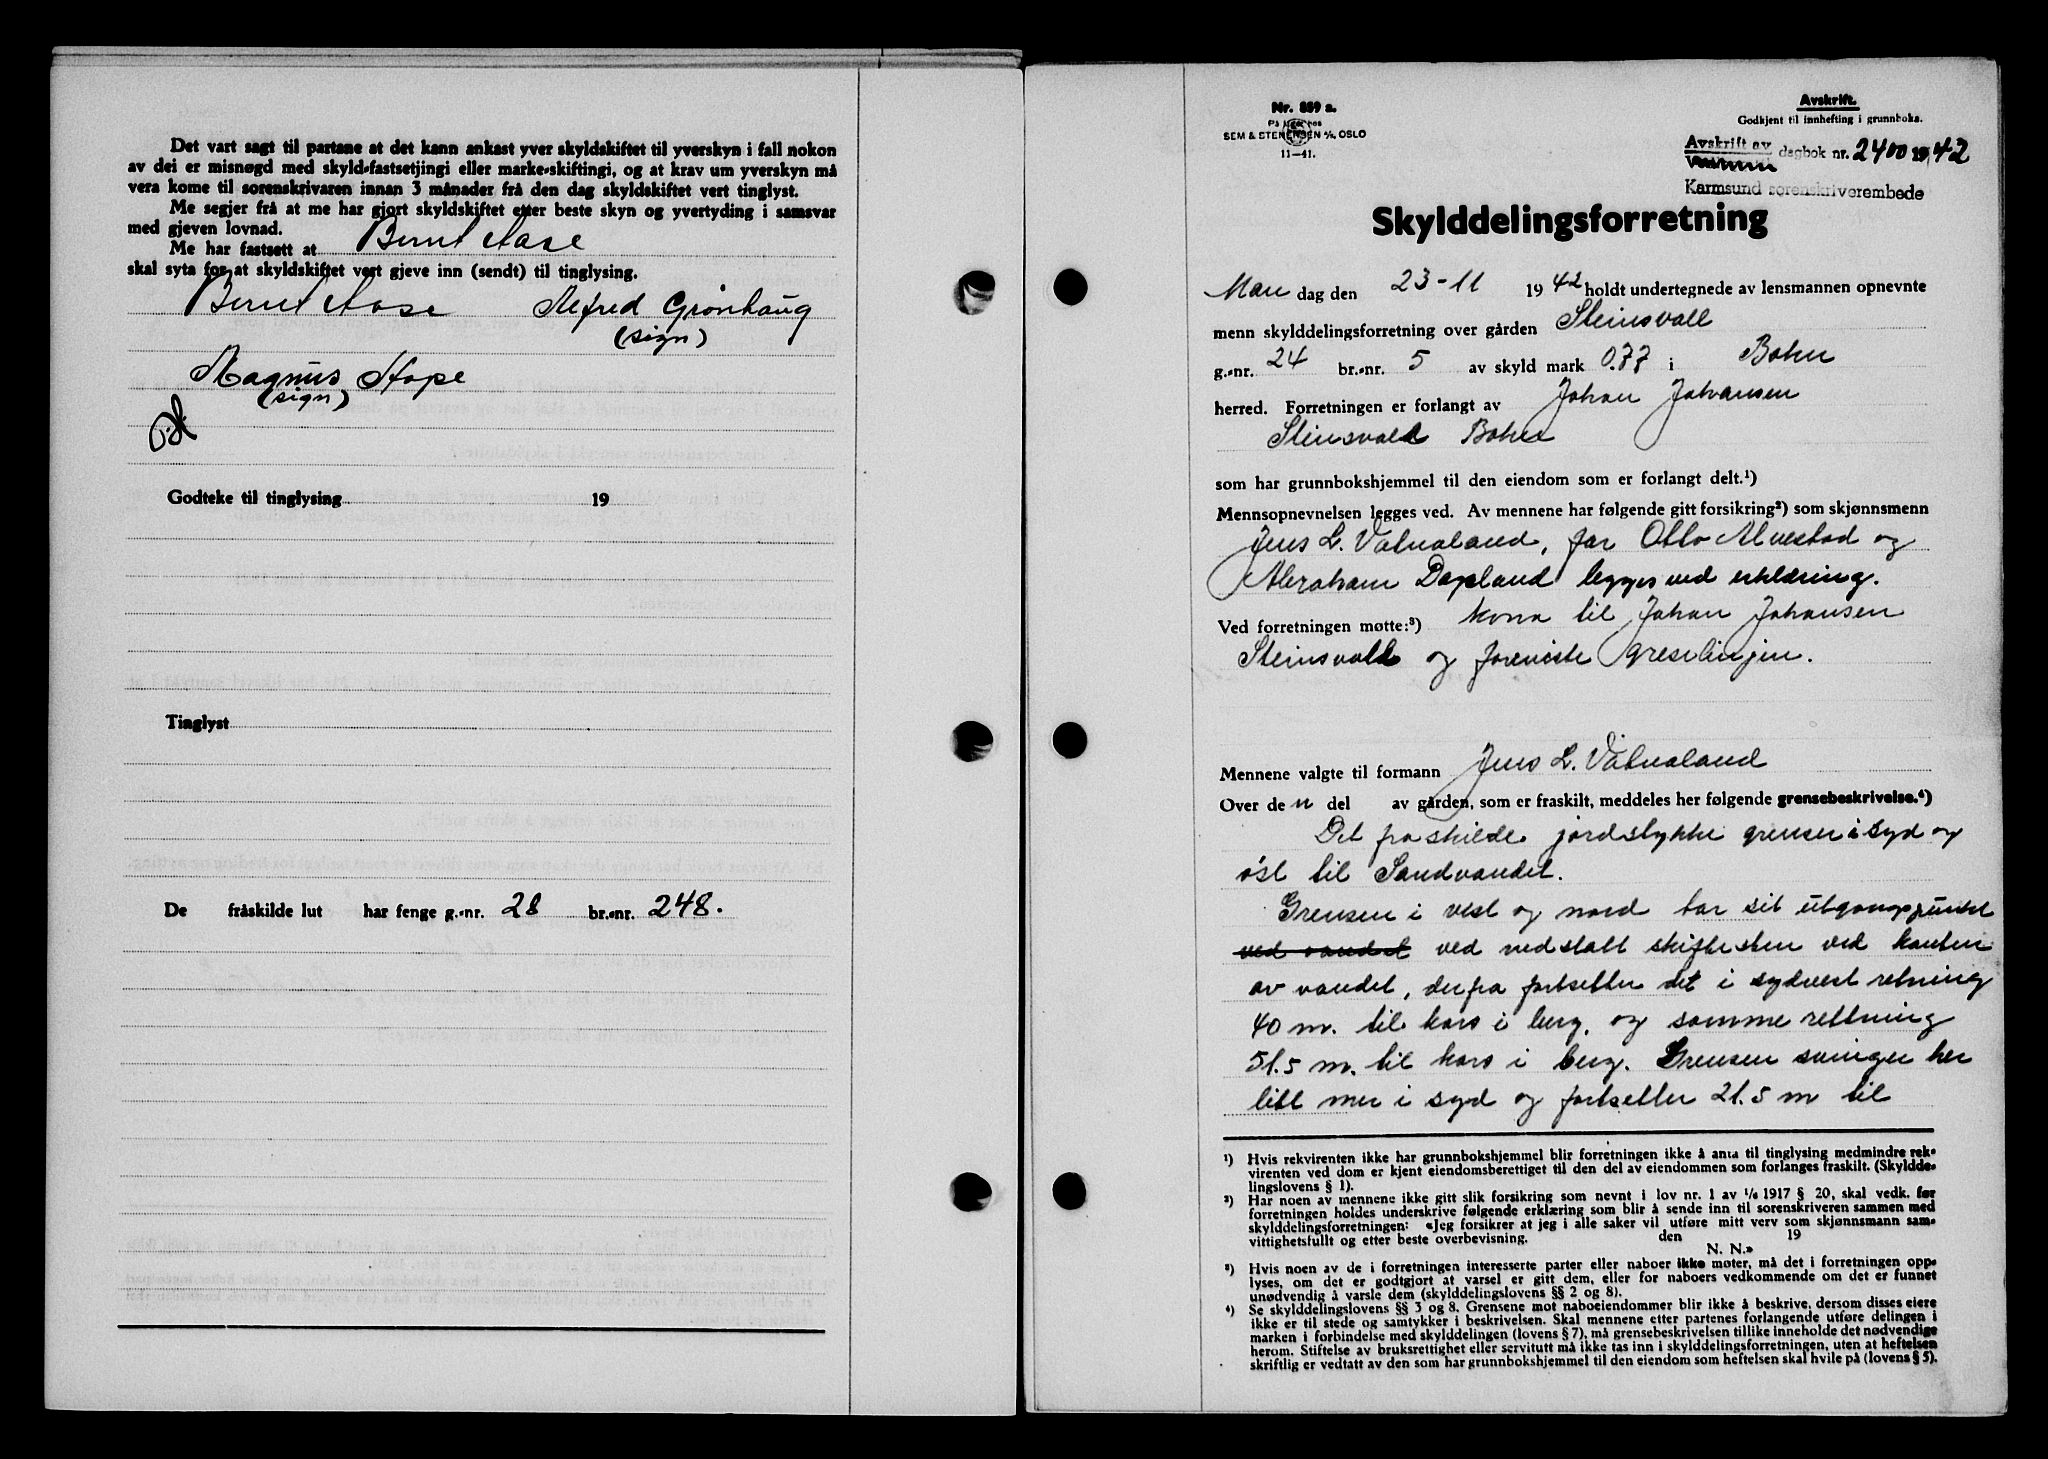 Det vart sagt til partane at det kann ankast yver skyldskiftet til yverskyn i fall nokon
av dei er misnøgd med skyld-fastsetjingi eller marke-skiftingi, og at krav um yverskyn må
vera kome til sorenskrivaren innan 3 månader frå den dag skyldskiftet vert tinglyst.
Me segjer frå at me har gjort skyldskiftet etter beste skyn og yvertyding i samsvar
med gjeven lovnad.
Me har fastsett at Bernt Aase
skal syta for at skyldskiftet vert gjeve inn (sendt) til tinglysing.
Bernt Aase Alfred Grønhaug
(sign)
Magnus Hope
(sign)
Godteke til tinglysing 19
Tinglyst
De fråskilde lut har fenge g.-nr. 28 br.-nr. 248.
Nr. 889 a.
På lager hos
SEM & STENERSEN A/S, OSLO
11-41.
Avskrift.
Godkjent til innhefting i grunnboka.
Avskrift av
dagbok nr. 2400 1942
Karmsund sorenskriverembede
Skylddelingsforretning
Man dag den 23-11 1942 holdt undertegnede av lensmannen opnevnte
menn skylddelingsforretning over gården Steinsvoll
g.-nr. 24 br.-nr. 5 av skyld mark 0.77 i Bokn
herred. Forretningen er forlangt av Johan Johansen
Steinsvoll Bokn
som har grunnbokshjemmel til den eiendom som er forlangt delt.¹)
Mennsopnevnelsen legges ved. Av mennene har følgende gitt forsikring²) som skjønnsmenn
Jens L. Vatnaland, for Otto Alvestad og
Abraham Dapland legges ved erklæring.
Ved forretningen møtte:³) kona til Johan Johansen
Steinsvoll og foreviste greselinjen.
Mennene valgte til formann Jens L. Vatnaland
Over den del av gården, som er fraskilt, meddeles her følgende grensebeskrivelse.⁴)
Det fraskilde jordstykke grenser i syd og
øst til Sandvandet.
Grensen i vest og nord tar sit utgangspunkt
ved vandet ved nedsatt skiftesten ved kanten
av vandet, derfra fortsetter det i sydvest retning
40 m. til kors i berg, og samme rettning
51.5 m. til kors i berg. Grensen svinger her
litt mer i syd og fortsetter 21.5 m til
¹) Hvis rekvirenten ikke har grunnbokshjemmel blir forretningen ikke å anta til tinglysing medmindre rek-
virenten ved dom er kjent eiendomsberettiget til den del av eiendommen som forlanges fraskilt. (Skyldde-
lingslovens § 1).
²) Har noen av mennene ikke gitt slik forsikring som nevnt i lov nr. 1 av 1/6 1917 § 20, skal vedk. før
forretningen holdes underskrive følgende erklæring som blir å sende inn til sorenskriveren sammen med
skylddelingsforretningen: «Jeg forsikrer at jeg i alle saker vil utføre mitt verv som skjønnsmann sam-
vittighetsfullt og etter beste overbevisning. den 19
N. N.»
³) Hvis noen av de i forretningen interesserte parter eller naboer ikke møter, må det i forretningen opp-
lyses, om det er godtgjort at varsel er gitt dem, eller for naboers vedkommende om det er funnet
unødvendig å varsle dem (skylddelingslovens §§ 2 og 8).
⁴) Se skylddelingslovens §§ 3 og 8. Grensene mot naboeiendommer blir ikke å beskrive, dersom disses eiere
ikke er til stede og samtykker i beskrivelsen. Skal mennene etter partenes forlangende utføre delingen i
marken i forbindelse med skylddelingen (lovens § 7), må grensebeskrivelsen tillike inneholde det nødvendige
herom. Stiftelse av bruksrettighet eller servitutt må ikke tas inn i skylddelingsforretningen, uten at heftelsen
skriftlig er vedtatt av den som har grunnbokshjemmel til den eiendom som heftelsen skal hvile på (lovens § 5).